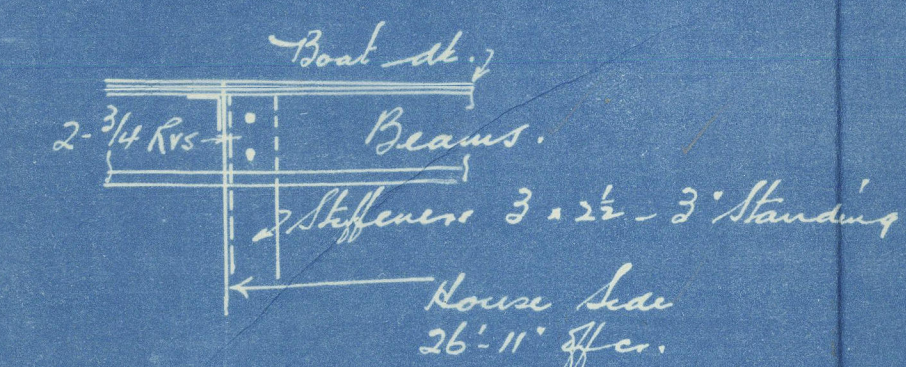 Boat dk.
2-3/4 Rvs
Beams.
Stiffeners 3 x 2½ - 3" Standing
House Side
26'-11" off cr.